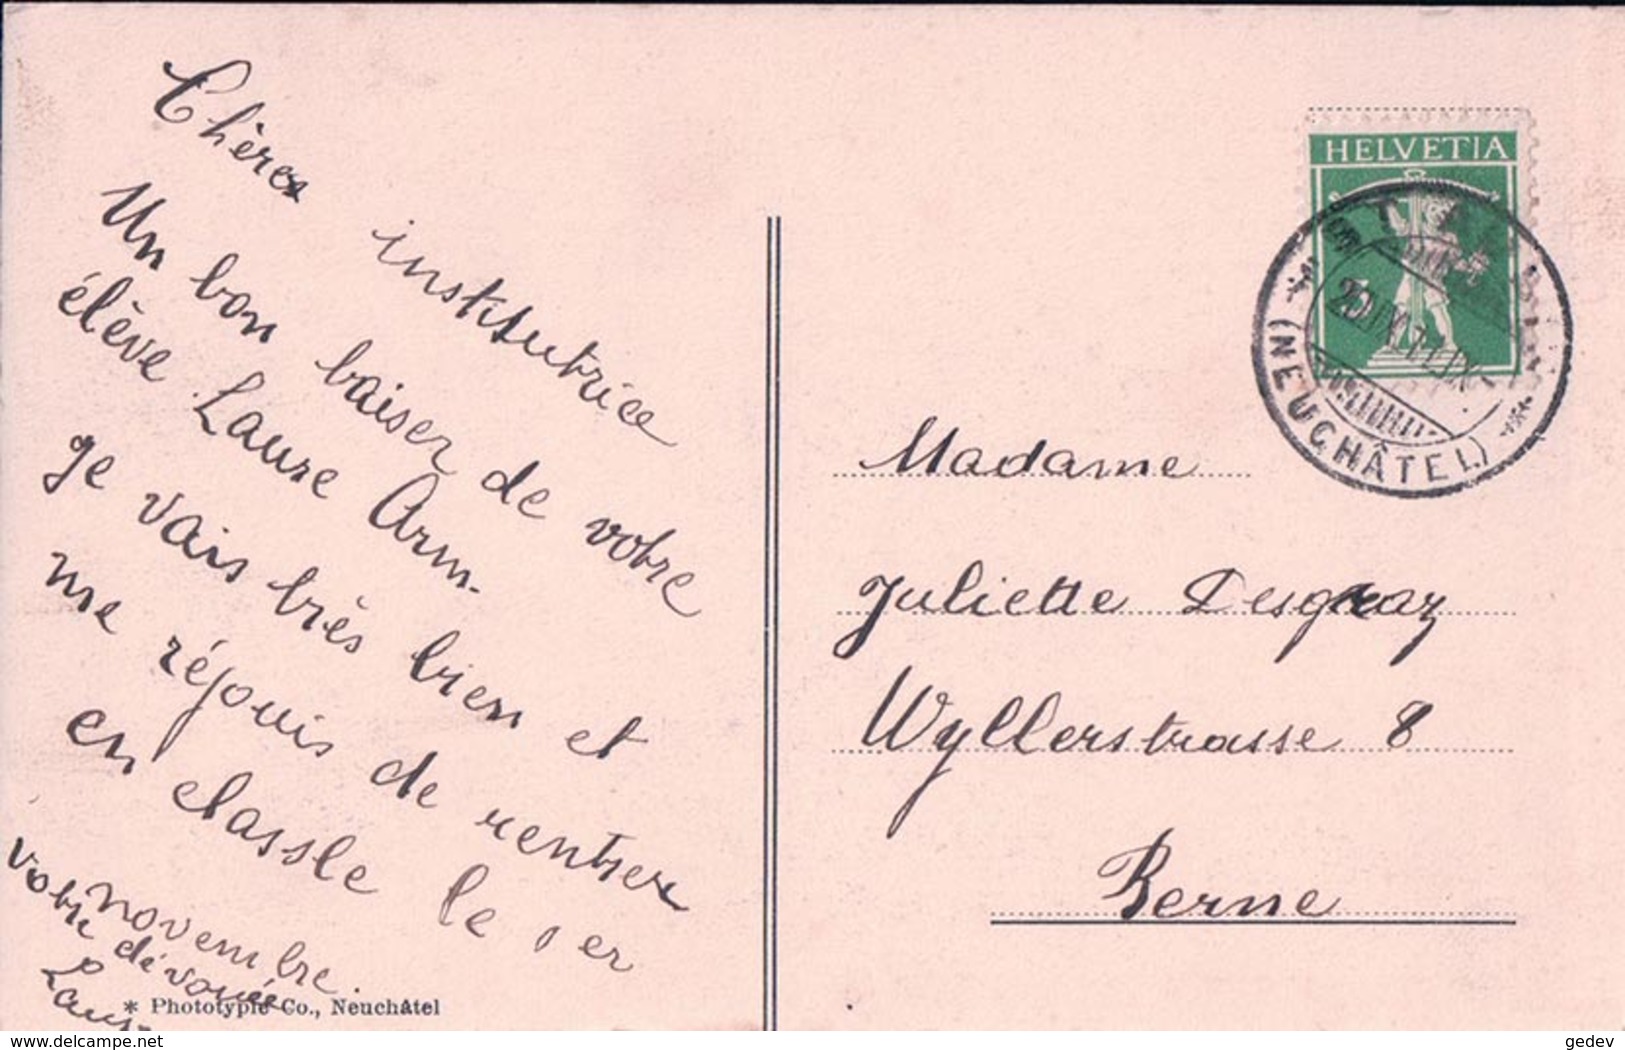 Chère
institutrice
Un bon baiser de votre
élève Laure Arm.
je vais très bien et
me réjouis de rentrer
en classle le 1er
novembre.
votre dévouée
Laure
* Phototypie Co., Neuchâtel
HELVETIA
(NEUCHÂTEL)
Madame
Juliette Desgraz
Wyllerstrasse 8
Berne
www.delcampe.net
gedev